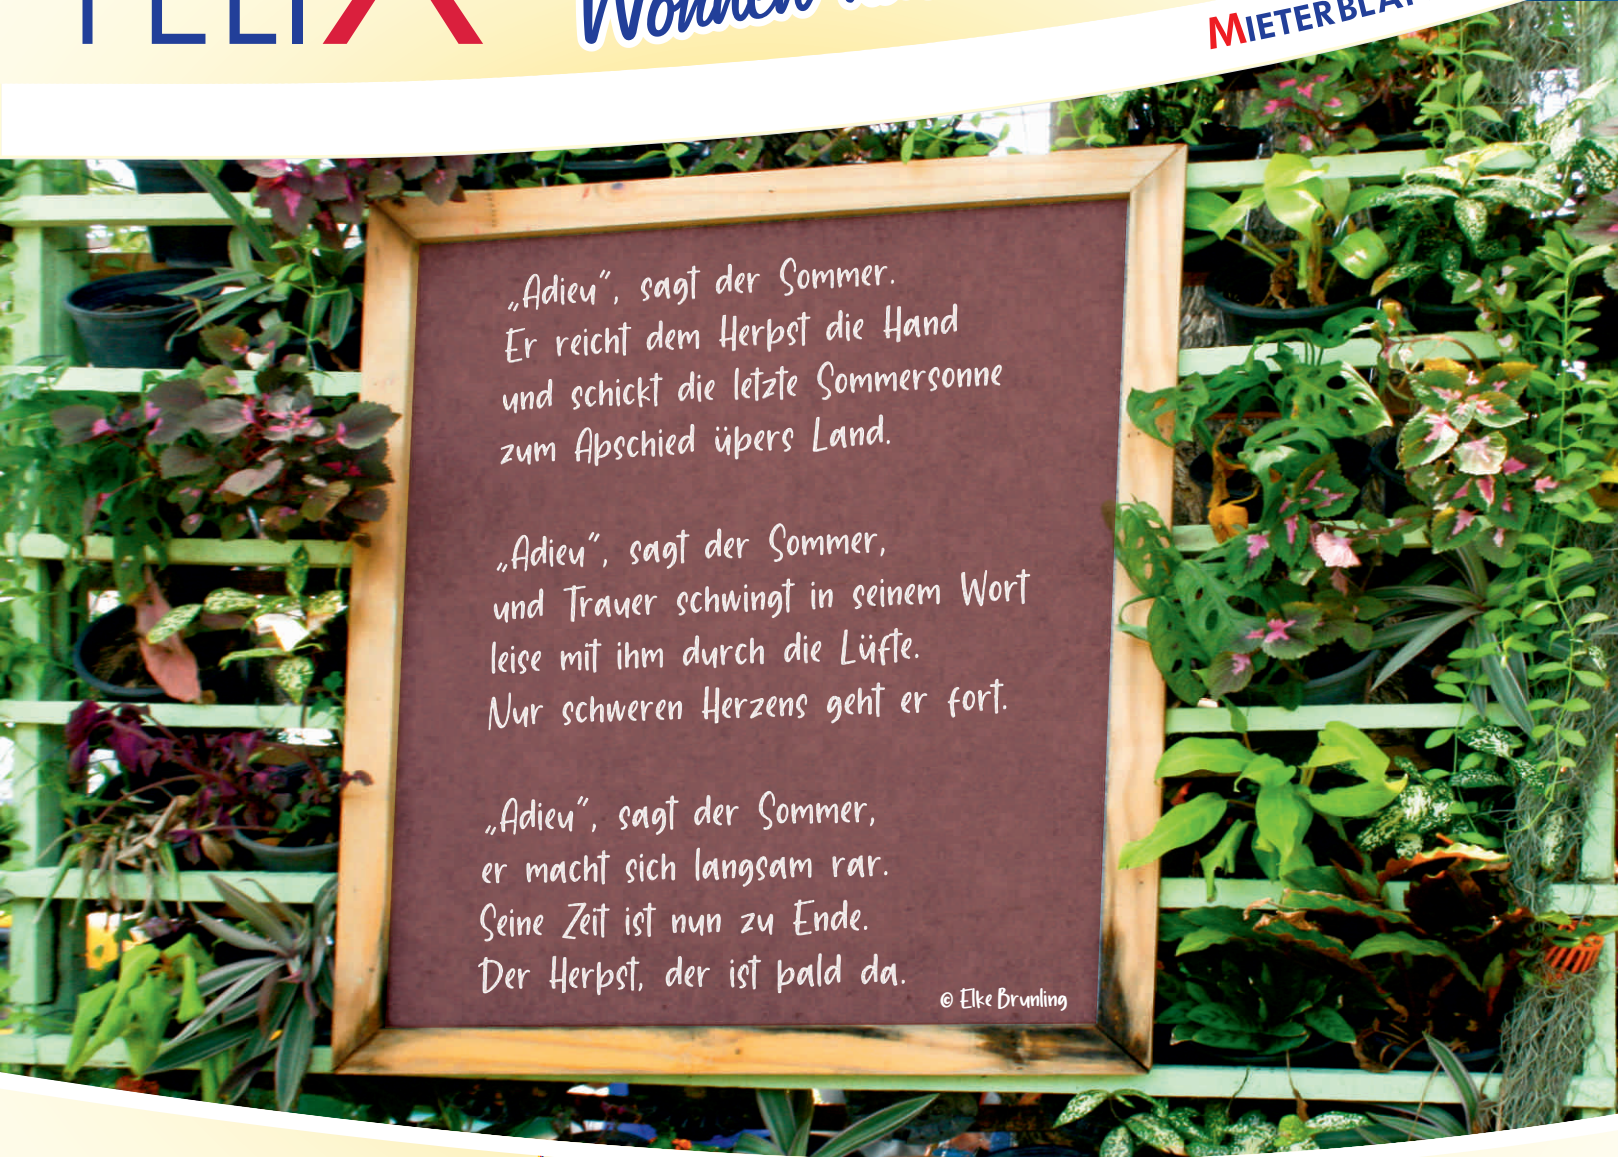 FELIX
Wohnen
MIETERBLAT
„Adieu“, sagt der Sommer.
Er reicht dem Herbst die Hand
und schickt die letzte Sommersonne
zum Abschied übers Land.
„Adieu“, sagt der Sommer,
und Trauer schwingt in seinem Wort
leise mit ihm durch die Lüfte.
Nur schweren Herzens geht er fort.
„Adieu“, sagt der Sommer,
er macht sich langsam rar.
Seine Zeit ist nun zu Ende.
Der Herbst, der ist bald da.
© Elke Brunling